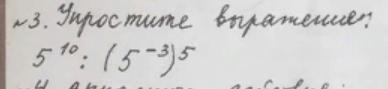 №3. Упростите выражения:
5¹⁰ : (5⁻³)⁵